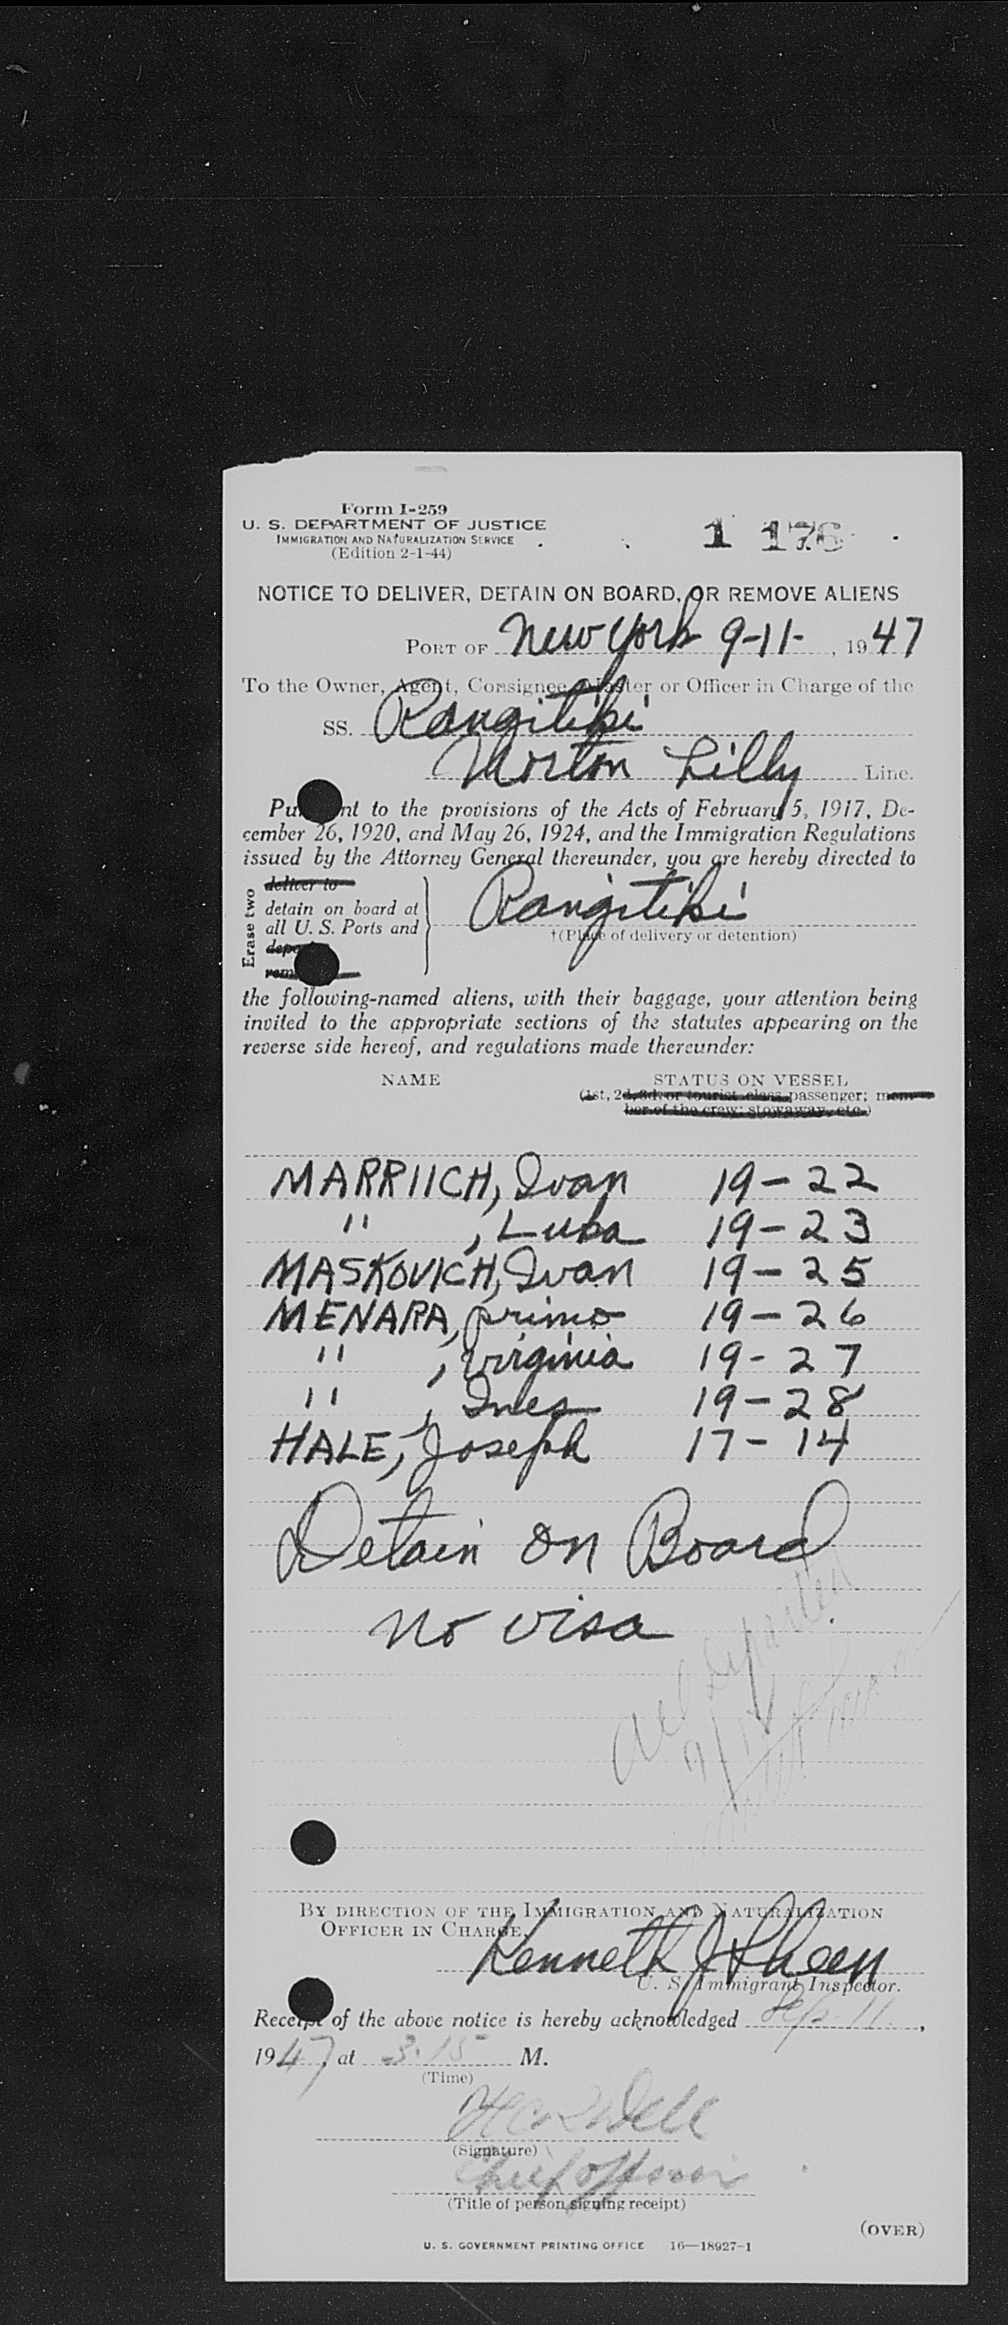 Form I-259
U. S. DEPARTMENT OF JUSTICE
IMMIGRATION AND NATURALIZATION SERVICE
(Edition 2-1-44)
1 176
NOTICE TO DELIVER, DETAIN ON BOARD, OR REMOVE ALIENS
PORT OF New York 9-11-, 1947
To the Owner, Agent, Consignee, Master or Officer in Charge of the
SS. Rangitiki
Morton Lilly Line.
Pu nt to the provisions of the Acts of February 5, 1917, De-
cember 26, 1920, and May 26, 1924, and the Immigration Regulations
issued by the Attorney General thereunder, you are hereby directed to
Erase two
deliver to
detain on board at
all U. S. Ports and
depo
rem
Rangitiki
†(Place of delivery or detention)
the following-named aliens, with their baggage, your attention being
invited to the appropriate sections of the statutes appearing on the
reverse side hereof, and regulations made thereunder:
NAME STATUS ON VESSEL
(1st, 2d, 3d, or tourist class passenger; mem-
ber of the crew; stowaway, etc.)
MARRIICH, Ivan 19-22
" , Luba 19-23
MASKOVICH, Ivan 19-25
MENARA, primo 19-26
" , Virginia 19-27
" , Ines 19-28
HALE, Joseph 17-14
Detain on Board
no visa
All Departed
BY DIRECTION OF THE IMMIGRATION AND NATURALIZATION
OFFICER IN CHARGE.
Kenneth J
U. S. Immigrant Inspector.
Receipt of the above notice is hereby acknowledged Sep. 11,
1947, at 3.15 M.
(Time)
(Signature)
Chief officer
(Title of person signing receipt)
(OVER)
U. S. GOVERNMENT PRINTING OFFICE 16—18927-1